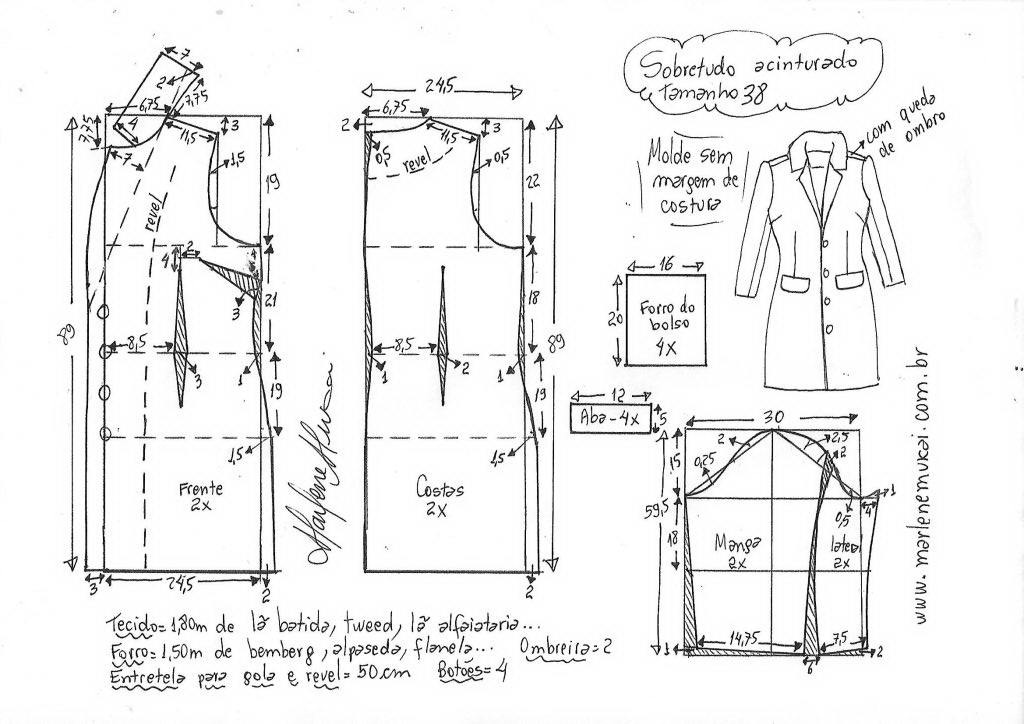 Sobretudo acinturado
Tamanho 38
com queda
de ombro
Molde sem
margem de
costura
7
2
7,75
6,75
4
7,75
7
11,5
3
1,5
19
revel
2
4
3
21
8,5
3
1
19
1,5
89
Frente
2x
3
24,5
2
24,5
6,75
2
0,5
revel
11,5
3
0,5
22
18
8,5
1
2
1
19
1,5
89
Costas
2x
2
16
20
Forro do
bolso
4x
12
Aba-4x
5
30
2
2,5
2
0,25
15
1
0,5
4
59,5
18
Manga
2x
lateral
2x
14,75
7,5
1
6
2
www.marlenemukai.com.br
Tecido=1,80m de lã batida, tweed, lã alfaiataria...
Forro=1,50m de bemberg, alpaseda, flanela... Ombreira=2
Entretela para gola e revel=50cm Botões=4